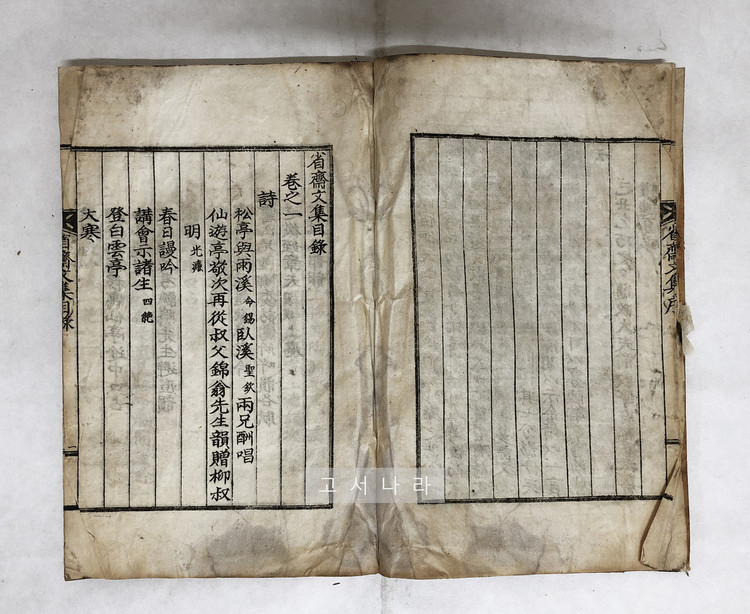 省齋文集序
省齋文集目錄
卷之一
詩
松亭與雨溪令錫臥溪聖欽兩兄酬唱
仙遊亭敬次再從叔父錦翁先生韻贈柳叔
明光濂
春日謾吟
講會示諸生四絶
登白雲亭
大寒
省齋文集目錄
一
고서나라